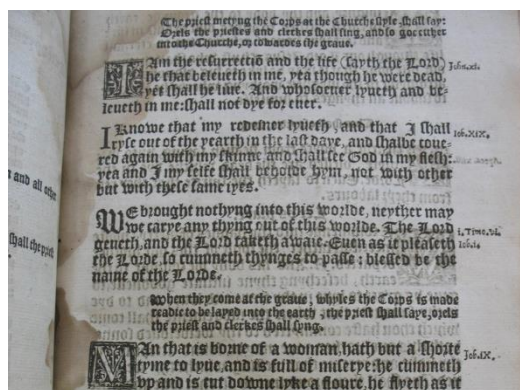 The priest metyng the Corps at the Churche style, shall say:
Orels the priestes and clerkes shall sing, and so goe eyther
into the Churche, or towardes the graue.
I Am the resurrectiõ and the life (sayth the Lord)
he that beleueth in me, yea though he were dead,
yet shall he liue. And whosoeuer lyueth and be-
leueth in me: shall not dye for euer.
John.xi.
I Knowe that my redemer lyueth, and that I shall
ryse out of the yearth in the last daye, and shalbe coue-
red again with my skinne, and shall see God in my flesh:
yea and I my selfe shall beholde hym, not with other
but with these same iyes.
Iob.XIX.
WE brought nothyng into this worlde, neyther may
we carye any thyng out of this worlde. The Lord
geueth, and the Lord taketh awaie. Euen as it pleaseth
the Lorde, so cummeth thynges to passe: blessed be the
name of the Lorde.
i.Time.vi.
Iob.i.
When they come at the graue, whyles the Corps is made
readie to be layed into the earth, the priest shall saye, orels
the priest and clerkes shall syng.
MAn that is borne of a woman, hath but a shorte
tyme to lyue, and is full of miserye: he cummeth
vp and is cut downe lyke a floure, he flyeth as it
Job.IX.
n and all other
shall the priest